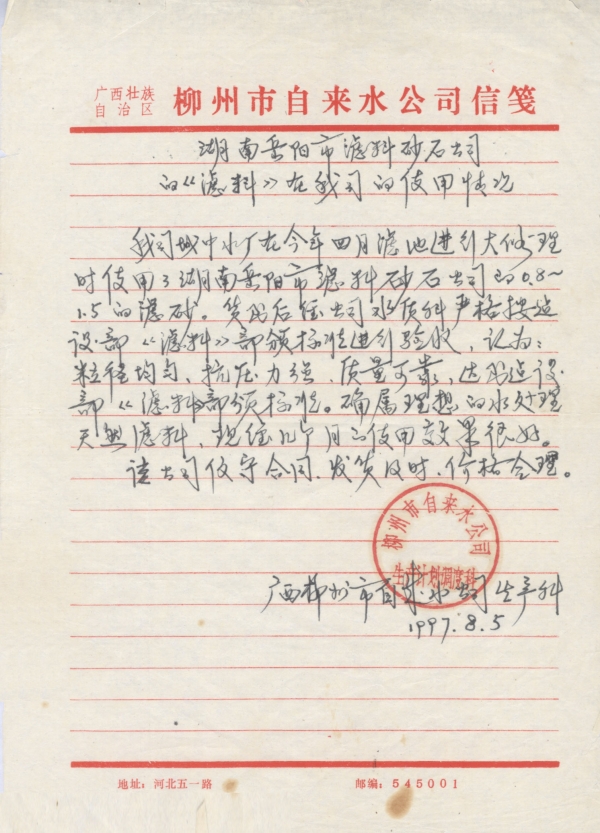 广西壮族
自治区
柳州市自来水公司信笺
湖南岳阳市滤料砂石公司
的《滤料》在我司的使用情况
我司城中水厂在今年四月滤池进行大修理
时使用了湖南岳阳市滤料砂石公司的0.8~
1.5的滤砂。货到后经公司水质科严格按建
设部《滤料》部颁标准进行验收,认为:
粒径均匀、抗压力强、质量可靠,达到建设
部《滤料》部颁标准。确属理想的水处理
天然滤料,现经几个月的使用效果很好。
该公司信守合同、发货及时、价格合理。
柳州市自来水公司
生产计划调度科
广西柳州市自来水公司生产科
1997.8.5
地址:河北五一路
邮编:545001